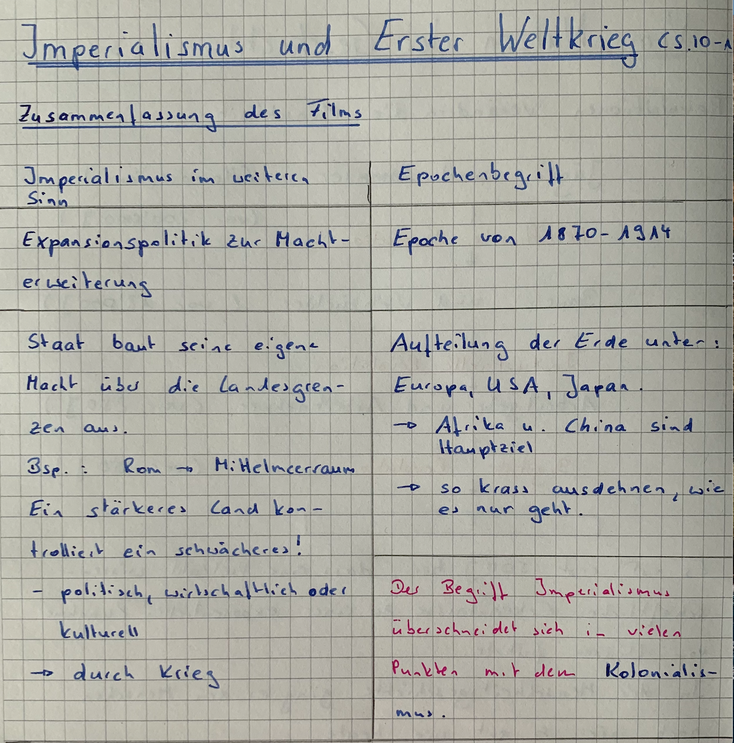 Imperialismus und Erster Weltkrieg (S.10-
Zusammenfassung des Films
Imperialismus im weiteren
Sinn
Expansionspolitik zur Macht-
erweiterung
Staat baut seine eigene
Macht über die Landesgren-
zen aus.
Bsp.: Rom → Mittelmeerraum
Ein stärkeres Land kon-
trolliert ein schwächeres!
- politisch, wirtschaftlich oder
kulturell
→ durch Krieg
Epochenbegriff
Epoche von 1870-1914
Aufteilung der Erde unter:
Europa, USA, Japan.
→ Afrika u. China sind
Hauptziel
→ so krass ausdehnen, wie
es nur geht.
Der Begriff Imperialismus
überschneidet sich in vielen
Punkten mit dem Kolonialis-
mus.